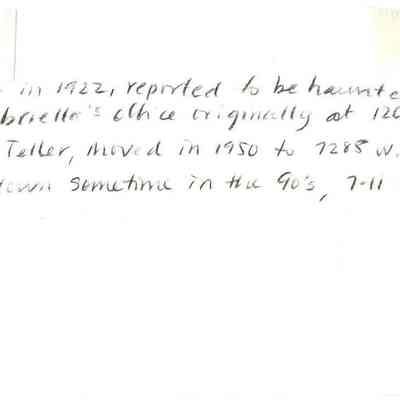 in 1922, reported to be haunte
briello's office originally at 120
Teller, moved in 1950 to 7285 W.
town sometime in the 90's, 7-11